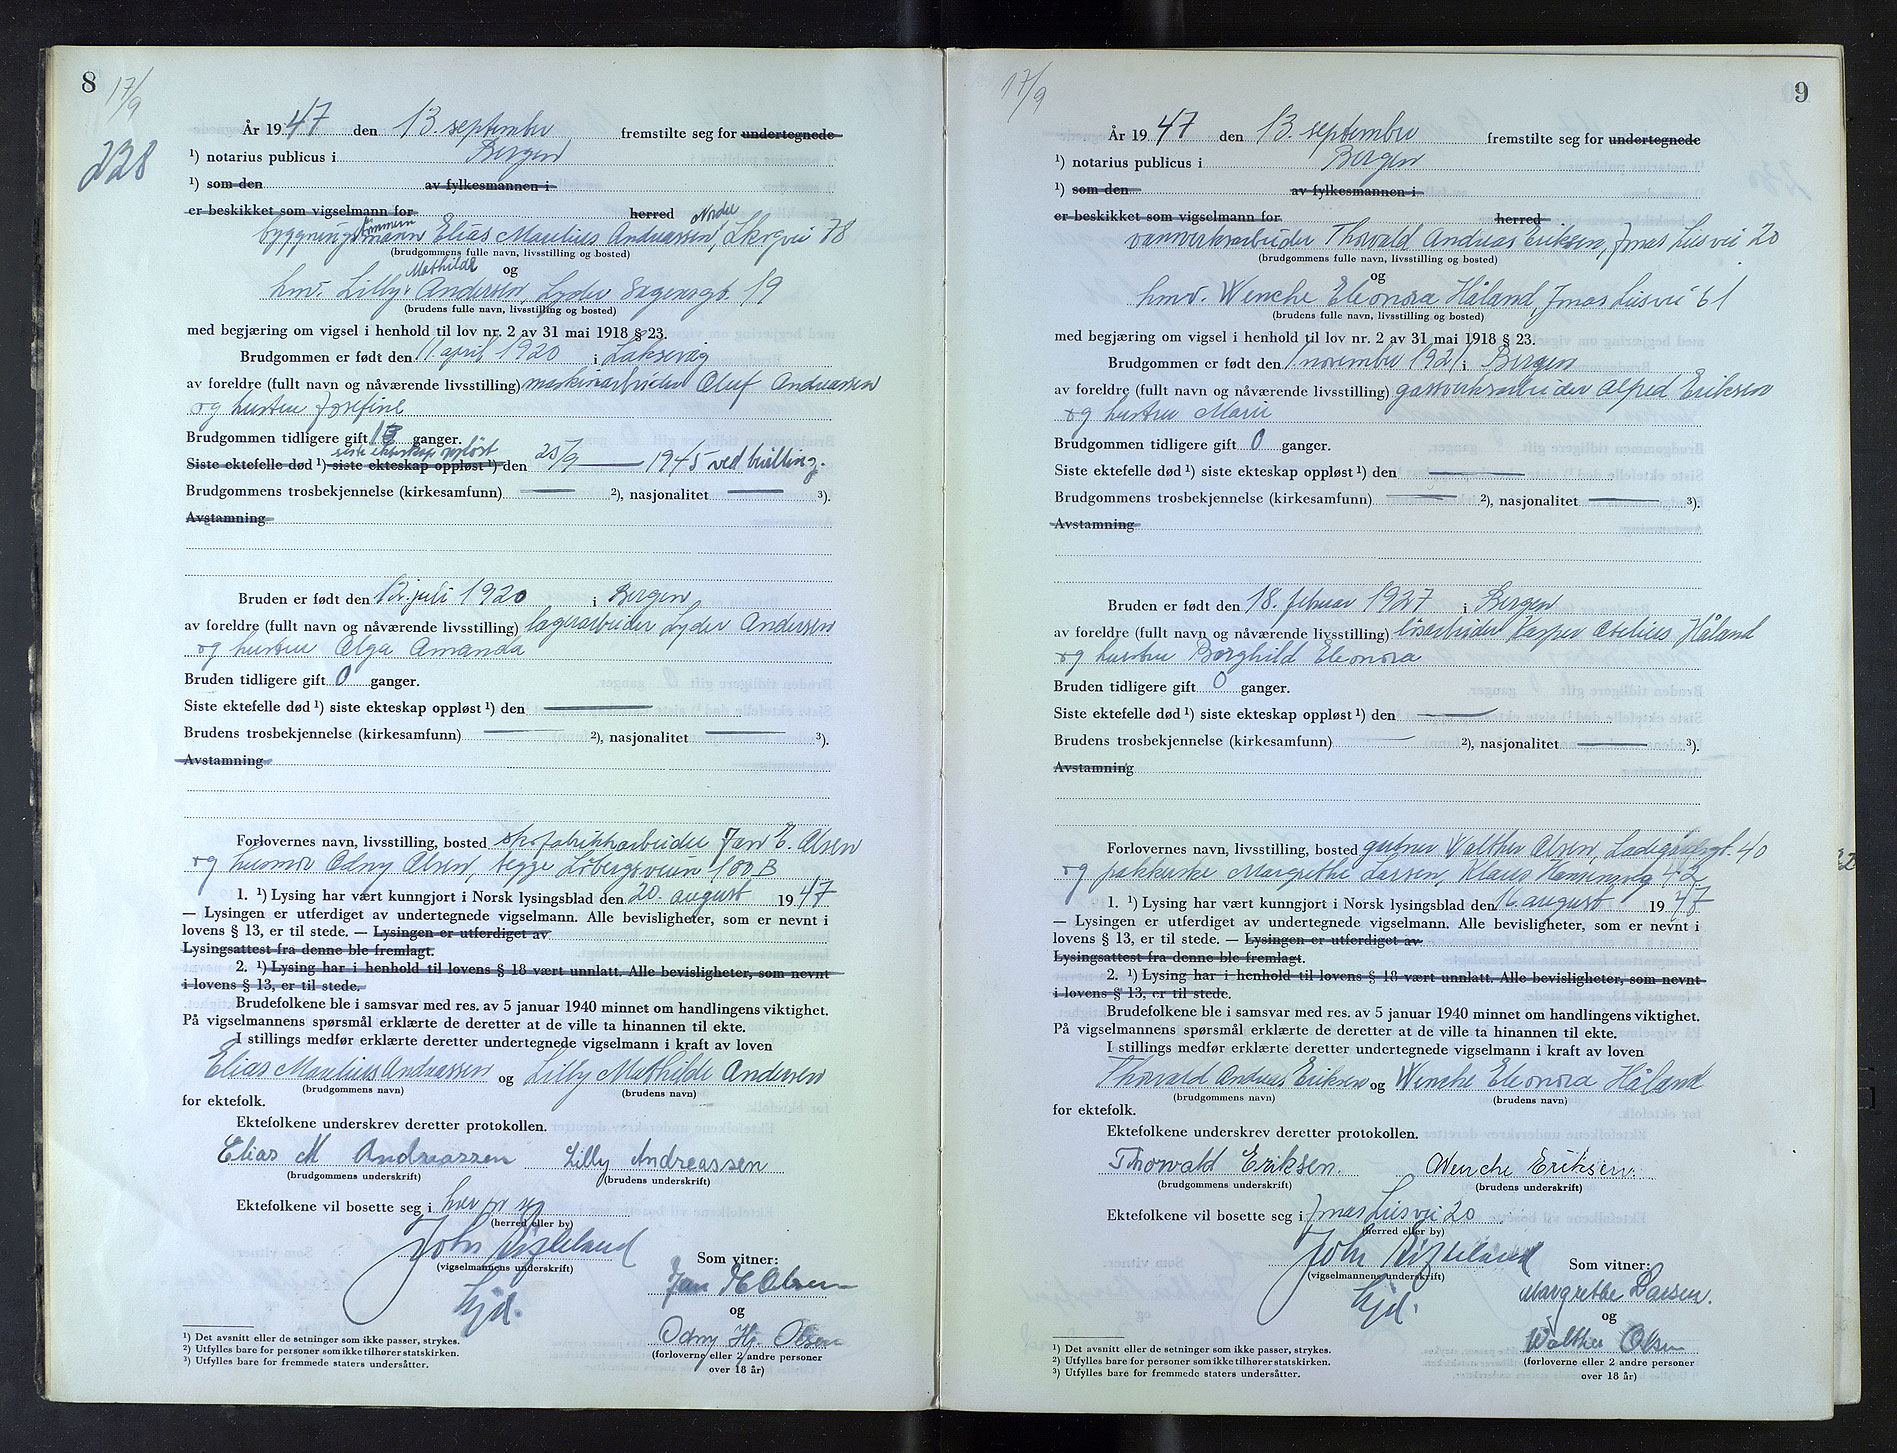 8 17/9
228
År 1947 den 13. september fremstilte seg for undertegnede
¹) notarius publicus i Bergen
¹) som den av fylkesmannen i
er beskikket som vigselmann for herred
bygningstømmermann Elias Marelius Andreassen, Nordre Skogvei 78
(brudgommens fulle navn, livsstilling og bosted)
og
hmv. Lilly Mathilde Andersen, Lyder Sagensgt. 19
(brudens fulle navn, livsstilling og bosted)
med begjæring om vigsel i henhold til lov nr. 2 av 31 mai 1918 § 23.
Brudgommen er født den 11 april 1920 i Laksevåg
av foreldre (fullt navn og nåværende livsstilling) maskinarbeider Oluf Andreassen
og hustru Josefine
Brudgommen tidligere gift 1 ganger.
siste ekteskap oppløst
Siste ektefelle død ¹) siste ekteskap oppløst ¹) den 25/9 1945 ved bevilling.
Brudgommens trosbekjennelse (kirkesamfunn) ²), nasjonalitet ³).
Avstamning
Bruden er født den 12. juli 1920 i Bergen
av foreldre (fullt navn og nåværende livsstilling) lagerarbeider Lyder Andersen
og hustru Olga Amanda
Bruden tidligere gift 0 ganger.
Siste ektefelle død ¹) siste ekteskap oppløst ¹) den
Brudens trosbekjennelse (kirkesamfunn) ²), nasjonalitet ³).
Avstamning
Forlovernes navn, livsstilling, bosted skofabrikkarbeider Jan E. Olsen
og husmor Odny Olsen, begge Løbergsveien 100 B
1. ¹) Lysing har vært kunngjort i Norsk lysingsblad den 20. august 1947
— Lysingen er utferdiget av undertegnede vigselmann. Alle bevisligheter, som er nevnt i
lovens § 13, er til stede. — Lysingen er utferdiget av
Lysingsattest fra denne ble fremlagt.
2. ¹) Lysing har i henhold til lovens § 18 vært unnlatt. Alle bevisligheter, som nevnt
i lovens § 13, er til stede.
Brudefolkene ble i samsvar med res. av 5 januar 1940 minnet om handlingens viktighet.
På vigselmannens spørsmål erklærte de deretter at de ville ta hinannen til ekte.
I stillings medfør erklærte deretter undertegnede vigselmann i kraft av loven
Elias Marelius Andreassen og Lilly Mathilde Andersen
(brudgommens navn) (brudens navn)
for ektefolk.
Ektefolkene underskrev deretter protokollen.
Elias M Andreassen Lilly Andreassen
(brudgommens underskrift) (brudens underskrift)
Ektefolkene vil bosette seg i hver for seg
(herred eller by)
John
(vigselmannens underskrift) Som vitner:
Jan E Olsen
og
Odny Hj. Olsen
(forloverne eller 2 andre personer
over 18 år)
¹) Det avsnitt eller de setninger som ikke passer, strykes.
²) Utfylles bare for personer som ikke tilhører statskirken.
³) Utfylles bare for fremmede staters undersåtter.
17/9 9
År 1947 den 13 september fremstilte seg for undertegnede
¹) notarius publicus i Bergen
¹) som den av fylkesmannen i
er beskikket som vigselmann for herred
vannverksarbeider Thorvald Andreas Eriksen, Jonas Liesvei 20
(brudgommens fulle navn, livsstilling og bosted)
og
hmv. Wenche Eleonora Håland, Jonas Liesvei 61
(brudens fulle navn, livsstilling og bosted)
med begjæring om vigsel i henhold til lov nr. 2 av 31 mai 1918 § 23.
Brudgommen er født den 1 november 1921 i Bergen
av foreldre (fullt navn og nåværende livsstilling) gassverksarbeider Alfred Eriksen
og hustru Marie
Brudgommen tidligere gift 0 ganger.
Siste ektefelle død ¹) siste ekteskap oppløst ¹) den
Brudgommens trosbekjennelse (kirkesamfunn) ²), nasjonalitet ³).
Avstamning
Bruden er født den 18. februar 1927 i Bergen
av foreldre (fullt navn og nåværende livsstilling) løsarbeider Kasper Håland
og hustru Borghild Eleonora
Bruden tidligere gift 0 ganger.
Siste ektefelle død ¹) siste ekteskap oppløst ¹) den
Brudens trosbekjennelse (kirkesamfunn) ²), nasjonalitet ³).
Avstamning
Forlovernes navn, livsstilling, bosted gartner Walther Olsen, Ladegårdsgt. 40
og pakkerske Margrethe Larsen, Klaus Hansensveg 42
1. ¹) Lysing har vært kunngjort i Norsk lysingsblad den 16. august 1947
— Lysingen er utferdiget av undertegnede vigselmann. Alle bevisligheter, som er nevnt i
lovens § 13, er til stede. — Lysingen er utferdiget av
Lysingsattest fra denne ble fremlagt.
2. ¹) Lysing har i henhold til lovens § 18 vært unnlatt. Alle bevisligheter, som nevnt
i lovens § 13, er til stede.
Brudefolkene ble i samsvar med res. av 5 januar 1940 minnet om handlingens viktighet.
På vigselmannens spørsmål erklærte de deretter at de ville ta hinannen til ekte.
I stillings medfør erklærte deretter undertegnede vigselmann i kraft av loven
Thorvald Andreas Eriksen og Wenche Eleonora Håland
(brudgommens navn) (brudens navn)
for ektefolk.
Ektefolkene underskrev deretter protokollen.
Thorvald Eriksen. Wenche Eriksen.
(brudgommens underskrift) (brudens underskrift)
Ektefolkene vil bosette seg i Jonas Liesvei 20
(herred eller by)
John
(vigselmannens underskrift) Som vitner:
Margrethe Larsen.
og
Walther Olsen
(forloverne eller 2 andre personer
over 18 år)
¹) Det avsnitt eller de setninger som ikke passer, strykes.
²) Utfylles bare for personer som ikke tilhører statskirken.
³) Utfylles bare for fremmede staters undersåtter.